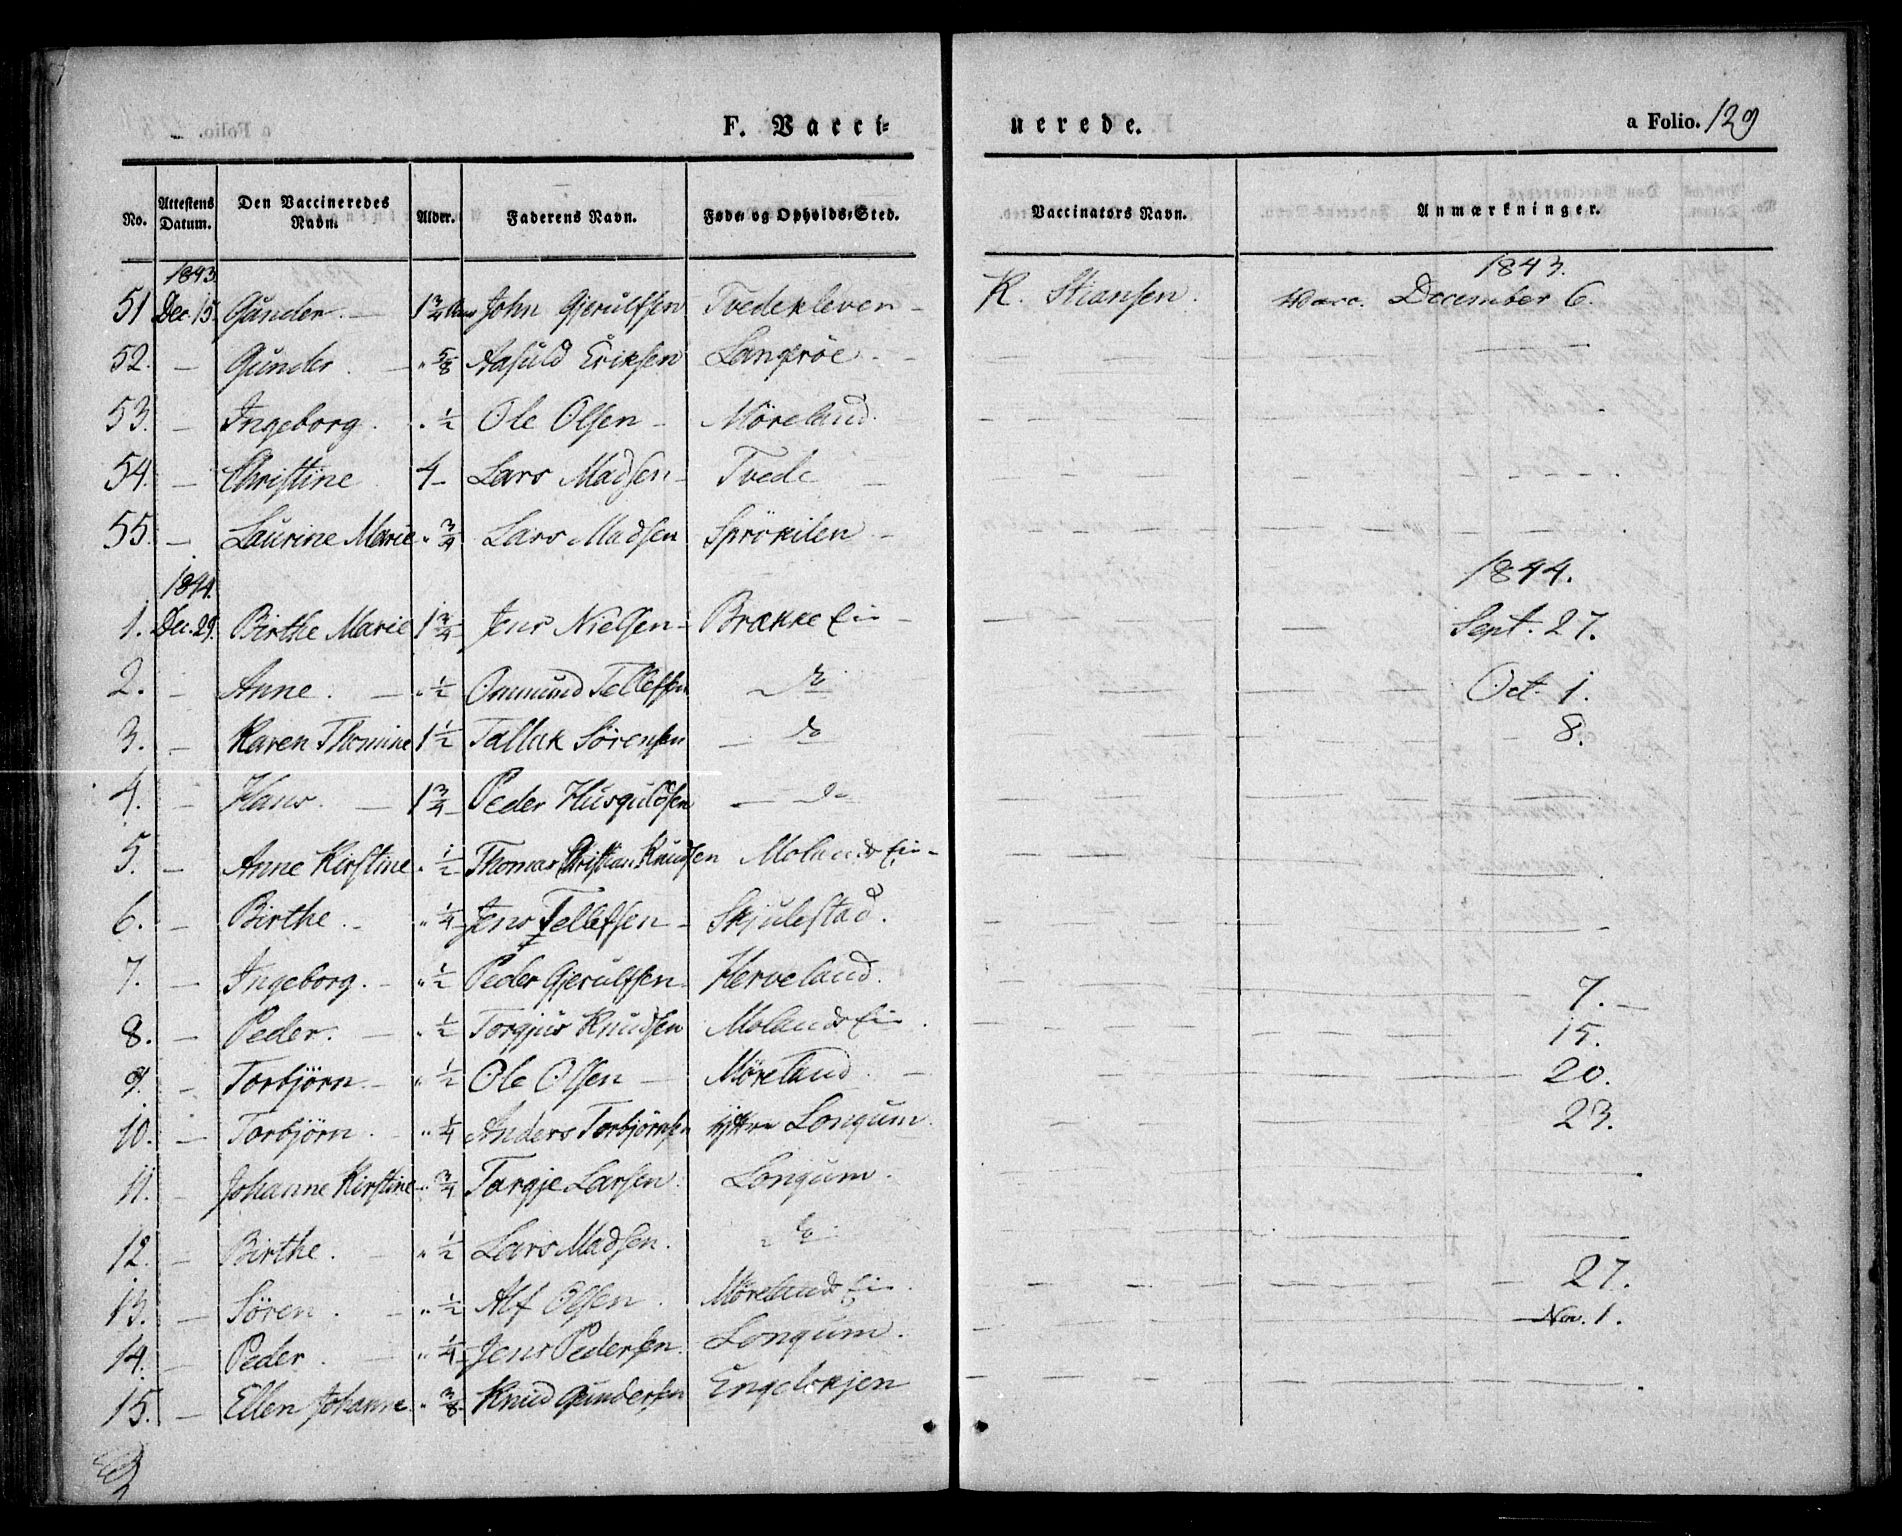 F. Vacci-
nerede.
a Folio. 129
No. Attestens Datum. Den Vaccineredes Navn. Alder. Faderens Navn. Føde- og Opholds-Sted. Vaccinators Navn. Anmærkninger.
1843. 1843.
51 Dec. 15. Gunder. — 1 3/4 John Gjerulfsen Tvedekleven — K. Stiansen. Vacc. December 6.
52. — Gunder. — " 5/8 Aasuld Eriksen Langerøe. — —
53. — Ingeborg. " 1/2 Ole Olsen — Möreland. —
54. — Christine 4 — Lars Madsen — Tvede —
55. — Laurine Marie " 3/4 Lars Madsen Sprökilen —
1844. 1844.
1. Dec. 29. Birthe Marie 1 3/4 Jens Nielsen — Brække Ei — Sept. 27.
2. — Anne. — " 1/2 Omund Tellefsen — do — Oct. 1.
3. — Karen Thomine 1 1/2 Tallak Sörensen — do — 8.
4. — Hans. — 1 3/4 Peder Husquldsen — do —
5. — Anne Kirstine " 1/2 Thomas Christian Knudsen Molands Ei —
6. — Birthe. — " 1/4 Jens Tellefsen — Skjulestad. —
7. — Ingeborg. — " 1/2 Peder Gjerulfsen Herveland. — 7. —
8. — Peder. — " 1/2 Torgjus Knudsen Molands Ei. — 15.
9. — Torbjörn. — " 1/2 Ole Olsen — Möreland. — 20.
10. — Torbjörn. — " 1/4 Anders Torbjörnsen Longum. — 23.
11. — Johanne Kirstine " 3/4 Targje Larsen. Longum. —
12. — Birthe. — " 1/2 Lars Madsen. — do —
13. — Sören. — " 1/2 Alf Olsen. Mörelands Ei. — 27.
14. — Peder. — " 1/4 Jens Pedersen. Longum. — Nov. 1.
15. — Ellen Johanne " 3/8 Knud Gundersen Engelskjen —